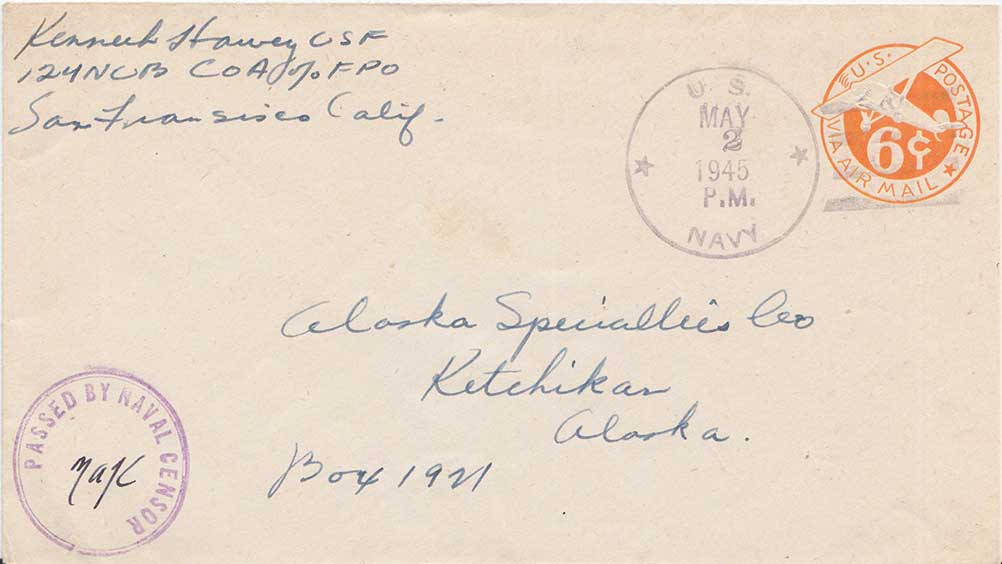 Kenneth Hawey CSF
124NCB CO A % FPO
San Fransisco Calif.
U.S.
MAY
2
1945
P.M.
NAVY
U.S. POSTAGE
6¢
VIA AIR MAIL
Alaska Speciallies Co
Ketchikan
Alaska.
Box 1921
PASSED BY NAVAL CENSOR